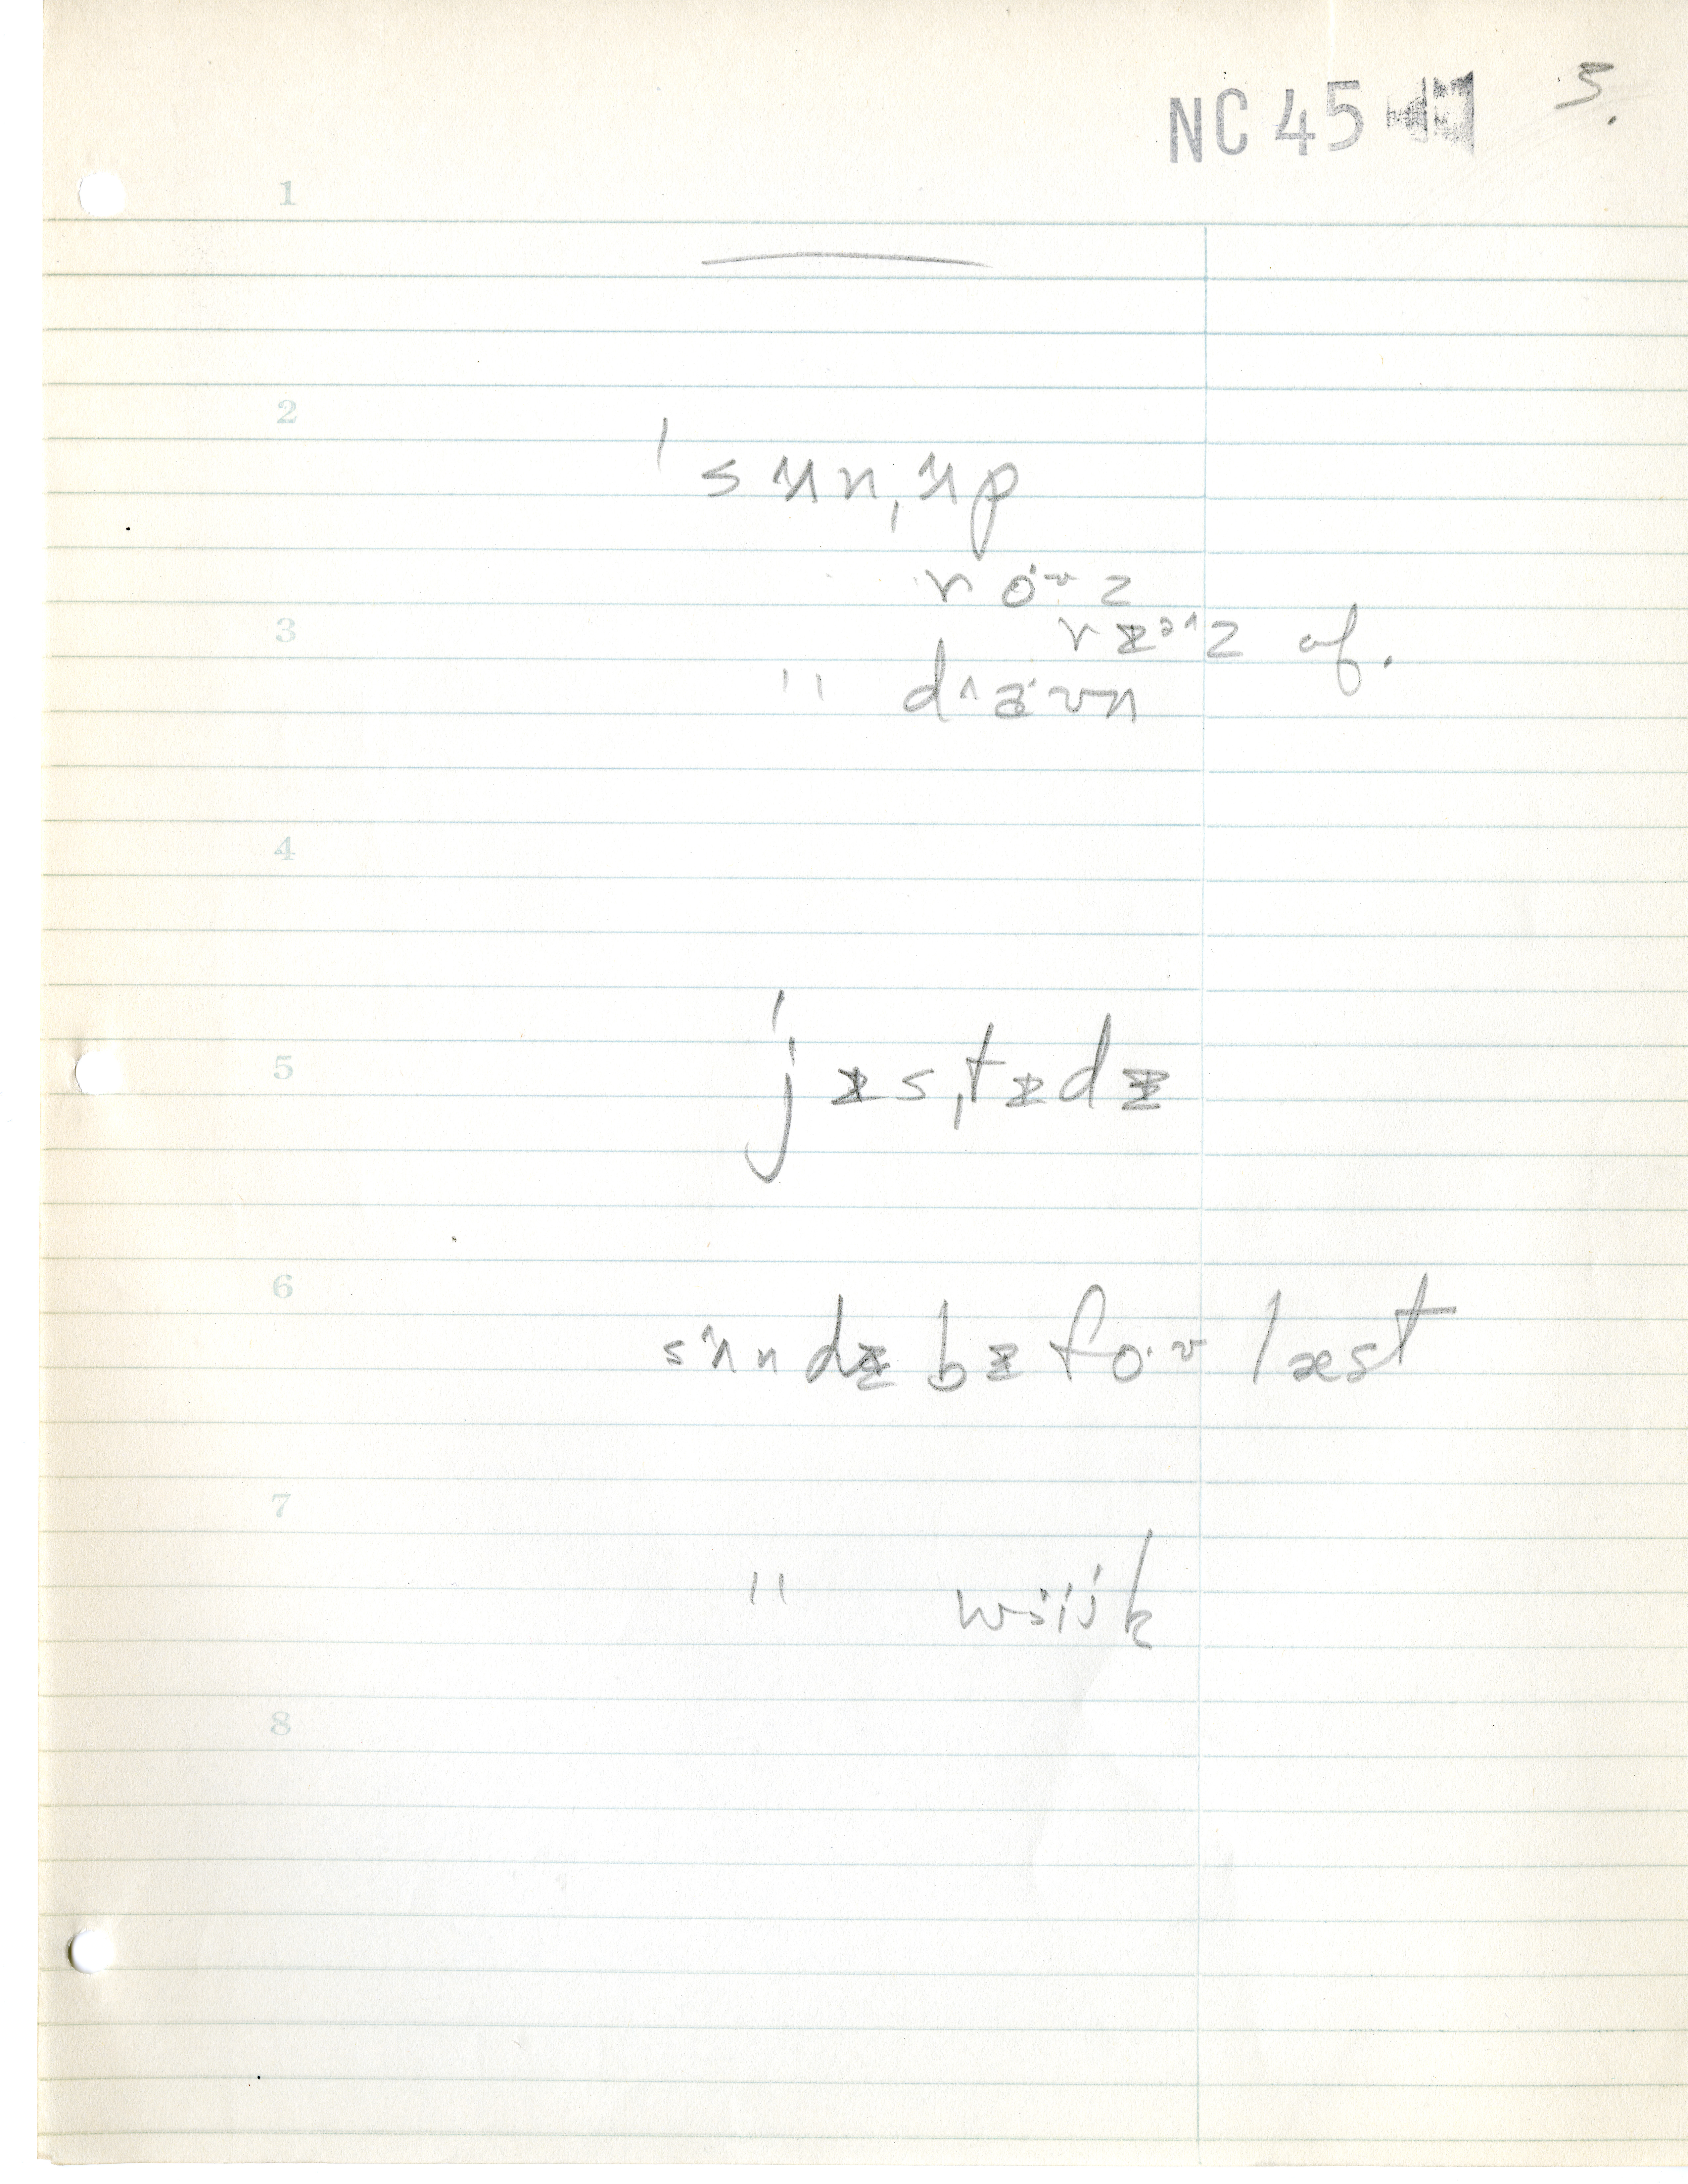 NC 45 5.
1
2
ˈsʌnˌʌp
ro·ʊz
3
rɪᵊ^z of.
" d^a·ʊn
4
5
ˈjɪsˌtɪdɪ
6
sʌndɪ bɪfo·ʊ læst
7
" wi·ik
8